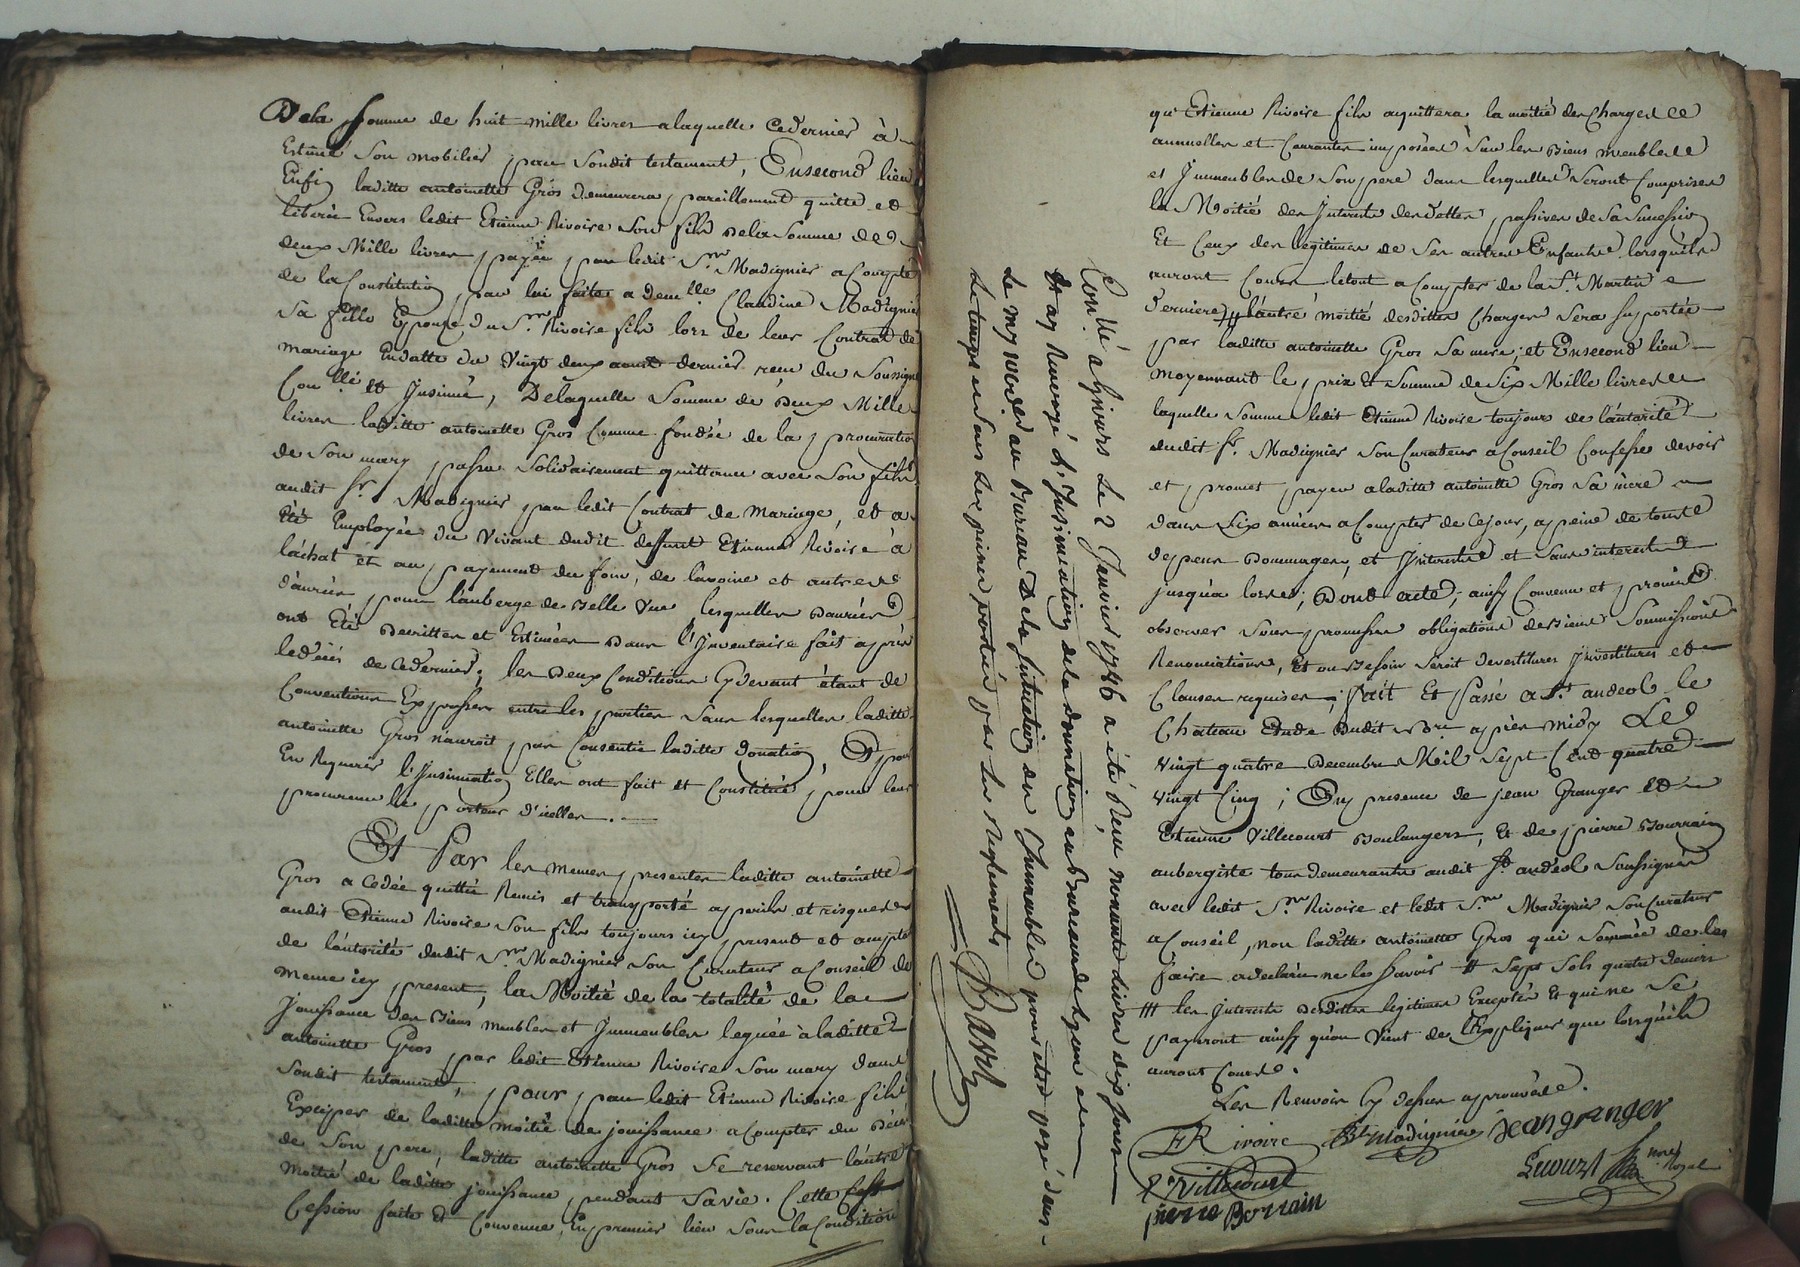 De la somme de huit mille livres alaquelle cedernier à
Estimé son mobilier par sondit testament, Ensecond lieu
Enfin laditte antoinette Gros demeurera pareillement quitte et
libérée Envers ledit Etienne Rivoire son fils dela somme de
deux Mille livres payée par ledit Sr Madignier acompte
de la Constitution par lui faitte a demlle Claudine Madignier
Sa fille Epouze du Sr Rivoire fils lors de leur Contrat de
mariage Endatte du vingt deux aout dernier recu du soussigné
Conllé et Insinué, Delaquelle Somme de Deux Mille
livres laditte antoinette Gros Comme fondée de la procuration
de son mary passa solidairement quittance avec son fils
audit Sr Madignier par ledit Contrat de Mariage, et a
Eté Employée du vivant dudit deffunt Etienne Rivoire à
láchat et au payement du foin, de lavoine et autres
d'anrées pour láuberge de Belle vue lesquelles Danrées
ont Eté Decrittes et Estimées Dans l'Inventaire fait après
ledécés de cedernier; les Deux Conditions Cydevant étant de
Conventions Expresses entre les parties sans lesquelles laditte
antoinette Gros n'auroit pas Consentie laditte donation, Et pour
En Requerir l'Insinuation Elles ont fait et Constitué pour leur
procureur le porteur d'icelles.
Et Par les memes presentes laditte antoinette
Gros a Cedée quitté Remis et transporté a perils et risques
audit Etienne Rivoire son fils toujours icy present et acceptant
de láutorité dudit Sr Madignier son Curateur a Conseil de
meme icy present, la Moitié de la totalité de la
Jouissance des Biens meubles et Immeubles leguée à laditte
antoinette Gros par ledit Etienne Rivoire son mary dans
sondit testament, pour par ledit Etienne Rivoire fils
Exciper de laditte moitié de jouissance a Compter du Décès
de son pere, laditte antoinette Gros se reservant láutre
moitié de laditte jouissance pendant sa vie. Cette
Cession faite Et Convenue, En premier lieu sous la Condition
Conllé a Givors le 2 Janvier 1786 a été Reçu nonante livres dix sous
et ay Renvoyé l'Insinuation de la donnation au Bureau de Lyon et
le my voider au Bureau De la situation des Immeubles pour etre payé dans
le temps et sous les peines portées par les Reglements
Bavoly
qu'Etienne Rivoire fils aquittera la moitié des Charges
annuelles et Courantes imposées sur les Biens meubles
et Immeubles de son pere dans lesquelles seront Comprises
la Moitié des Interets des dettes passives de sa succession
Et Ceux des legitimes de ses autres Enfants lorsqu'ils
auront Cours letout a compter de la St Martin
derniere, # láutre moitié desdittes Charges sera suportée
par laditte antoinette Gros sa mere; et Ensecond lieu
moyennant le prix & Somme de Six Mille livres
laquelle somme ledit Etienne Rivoire toujours de láutorité
dudit Sr Madignier son Curateur a Conseil Confesse devoir
et promet payer a laditte antoinette Gros Sa mere
dans Six années a Compter de cejour, a peine de tous
depens Dommages, et Interets et sans interets
jusqu'a lors; Dont acte; ainsy Convenu et promis
observer sous promesses obligations de Biens Soumissions
Renonciations, Et au Besoin seroit devestitures Investitures et
Clauses requises; fait Et Passé a St andeol le
Chateau Etude Dudit Nore après midy Le
vingt quatre Decembre Mil sept Cent quatre
vingt Cinq; En presence de jean Granger et
Etienne Villecourt Boulangers, Et de pierre Bourrain
aubergiste tous demeurants audit St andéol soussignés
avec ledit Sr Rivoire et ledit Sr Madignier son Curateur
a Conseil, non laditte antoinette Gros qui sommée de les
faire a declaré ne les sçavoir # sept sols quatre deniers
# les Interets desdittes legitimes Exceptés Et qui ne se
payeront ainsy qu'on vient de l'Expliquer que lorsqu'ils
auront Cours.
Les Renvois Cy dessus approuvés.
ERivoire Madignier jean granger
E Villecourt Lecourt Nore Royal
pierre Borrain